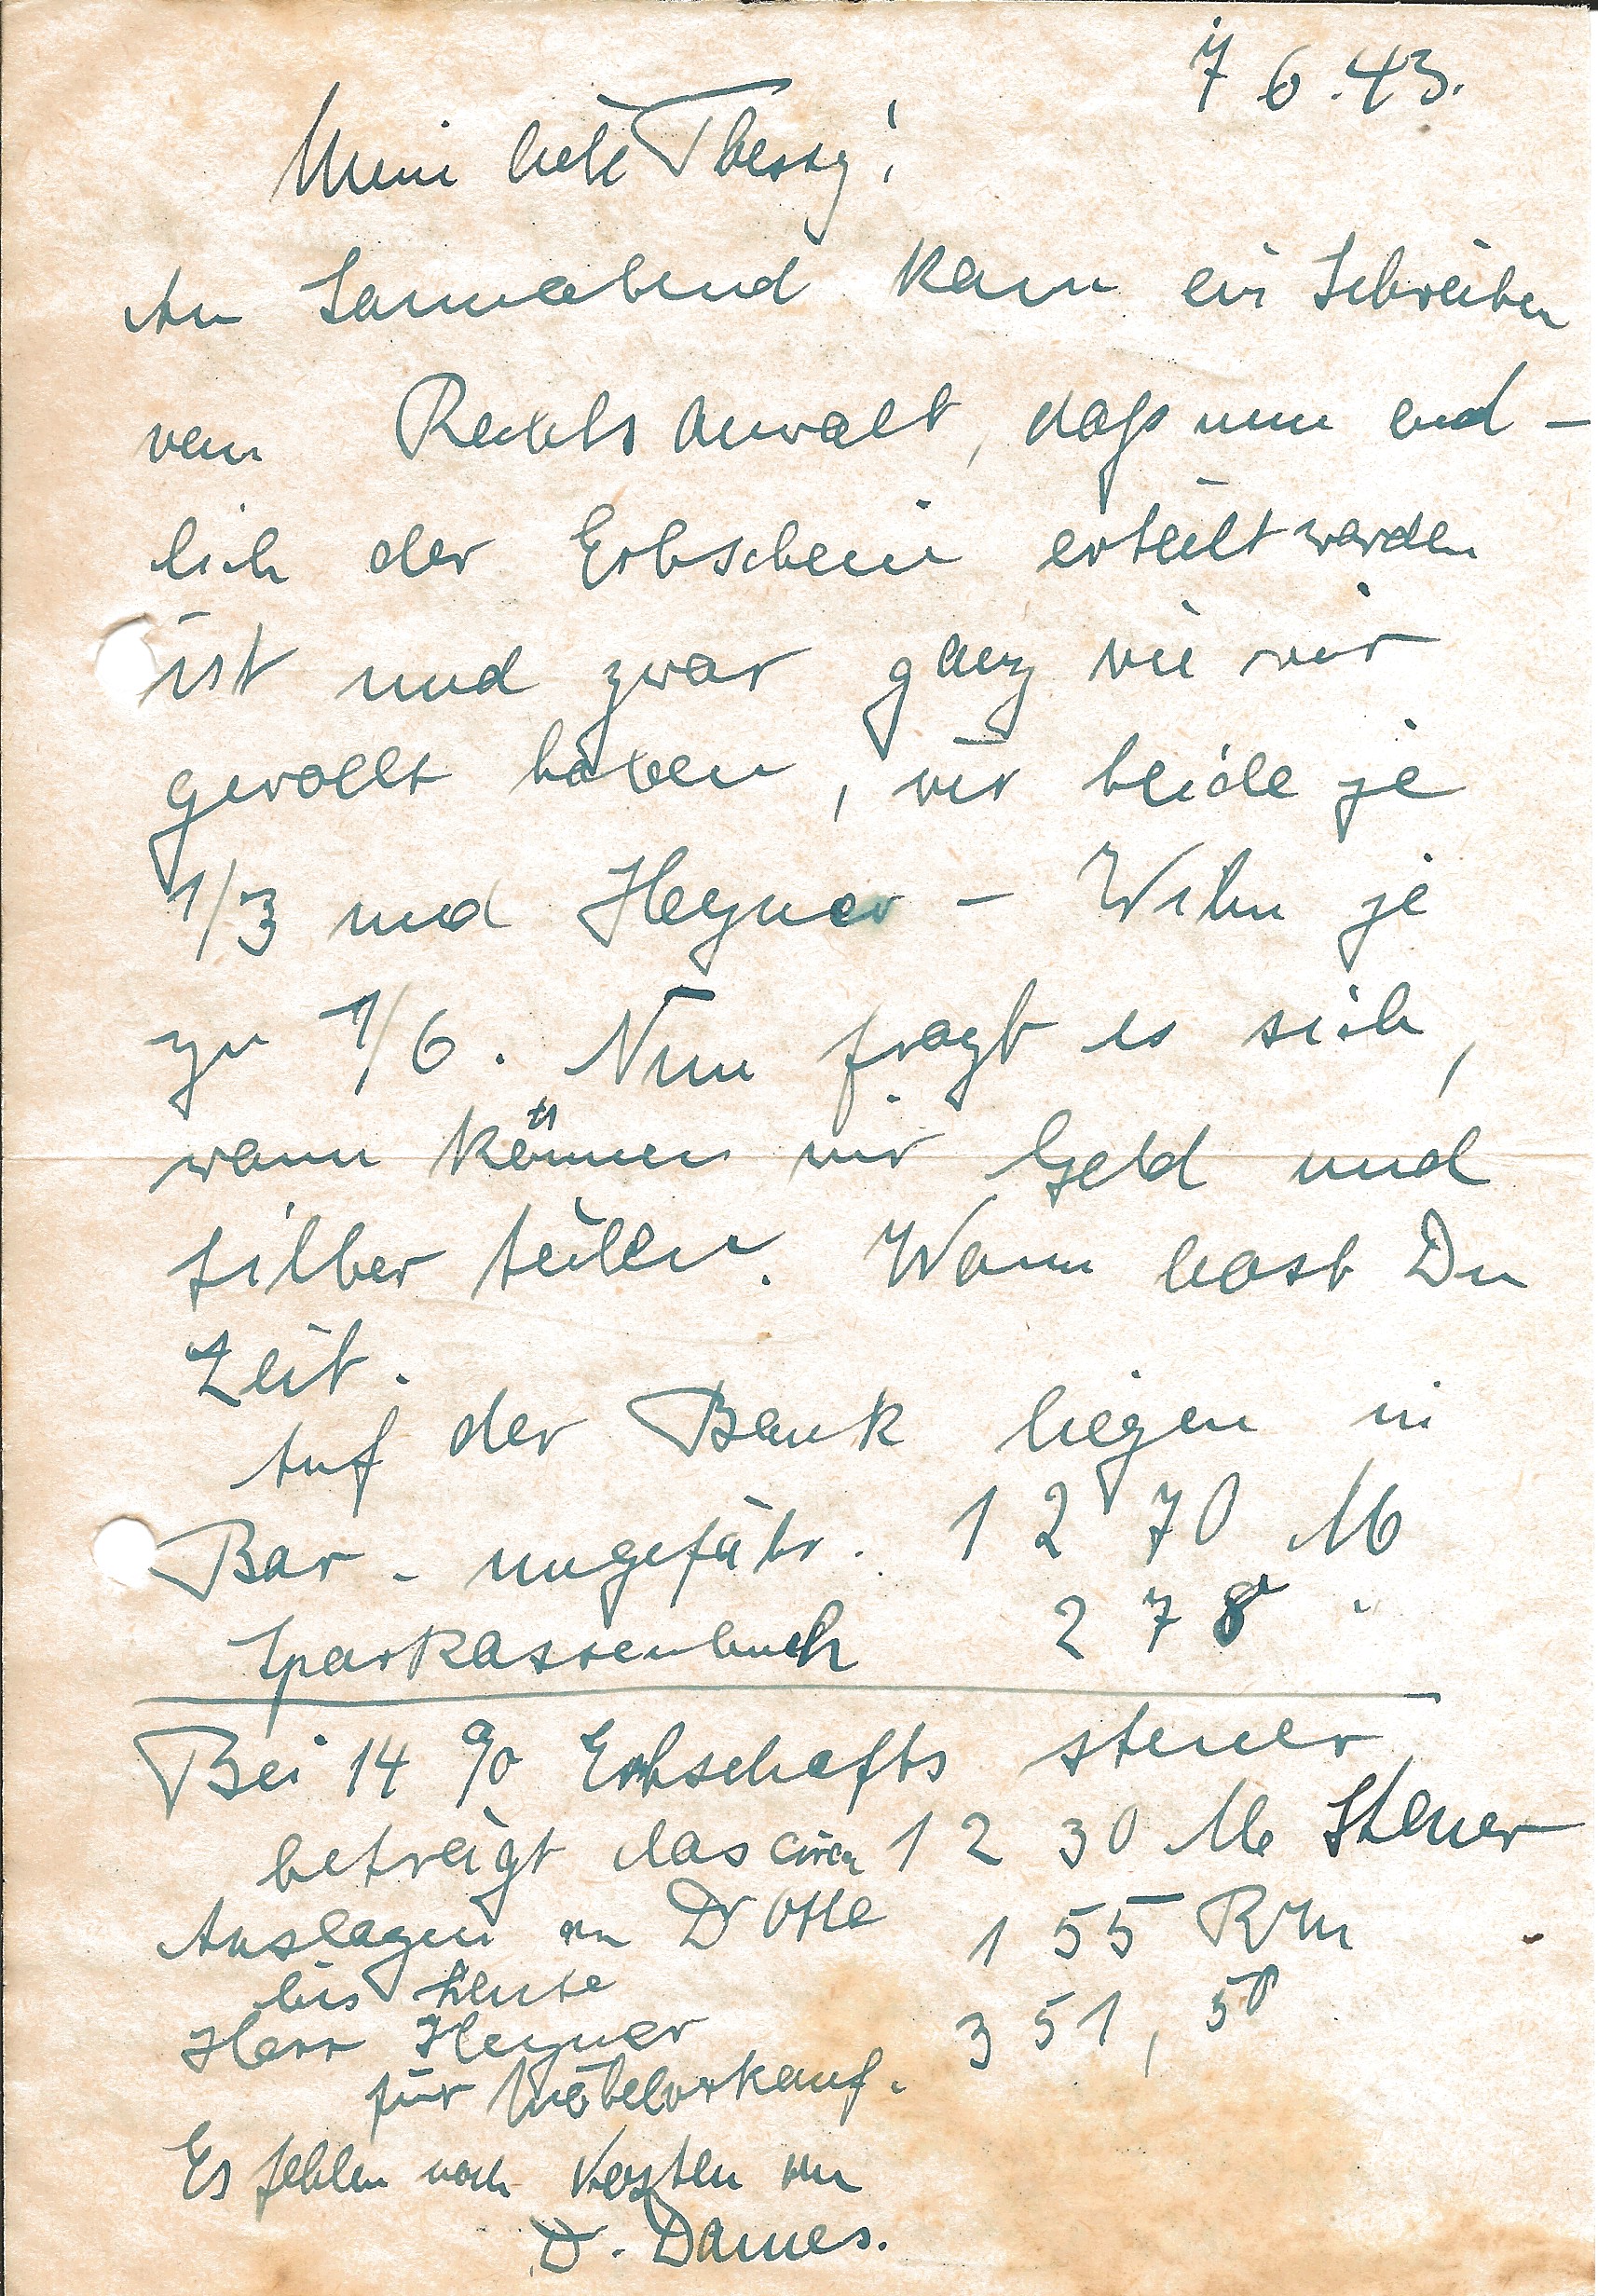 7 6.43.
Meine liebe Thessy!
Am Sonnabend kam ein Schreiben
vom Rechtsanwalt, daß nun end-
lich der Erbschein erteilt worden
ist und zwar ganz wie wir
gewollt haben, wir beide je
1/3 und Hegner - Wilm je
zu 1/6. Nun fragt es sich,
wann können wir Geld und
Silber teilen. Wann hast Du
Zeit.
Auf der Bank liegen in
Bar - ungefähr. 1270 M
Sparkassenbuch 278 "
Bei 14 % Erbschafts steuer
beträgt das circa 1230 M Steuer
Auslagen an Dr Otte 155 RM
bis heute
Herr Hegner 351,50
für Möbelverkauf.
Es fehlen noch Kosten von
D. Dames.